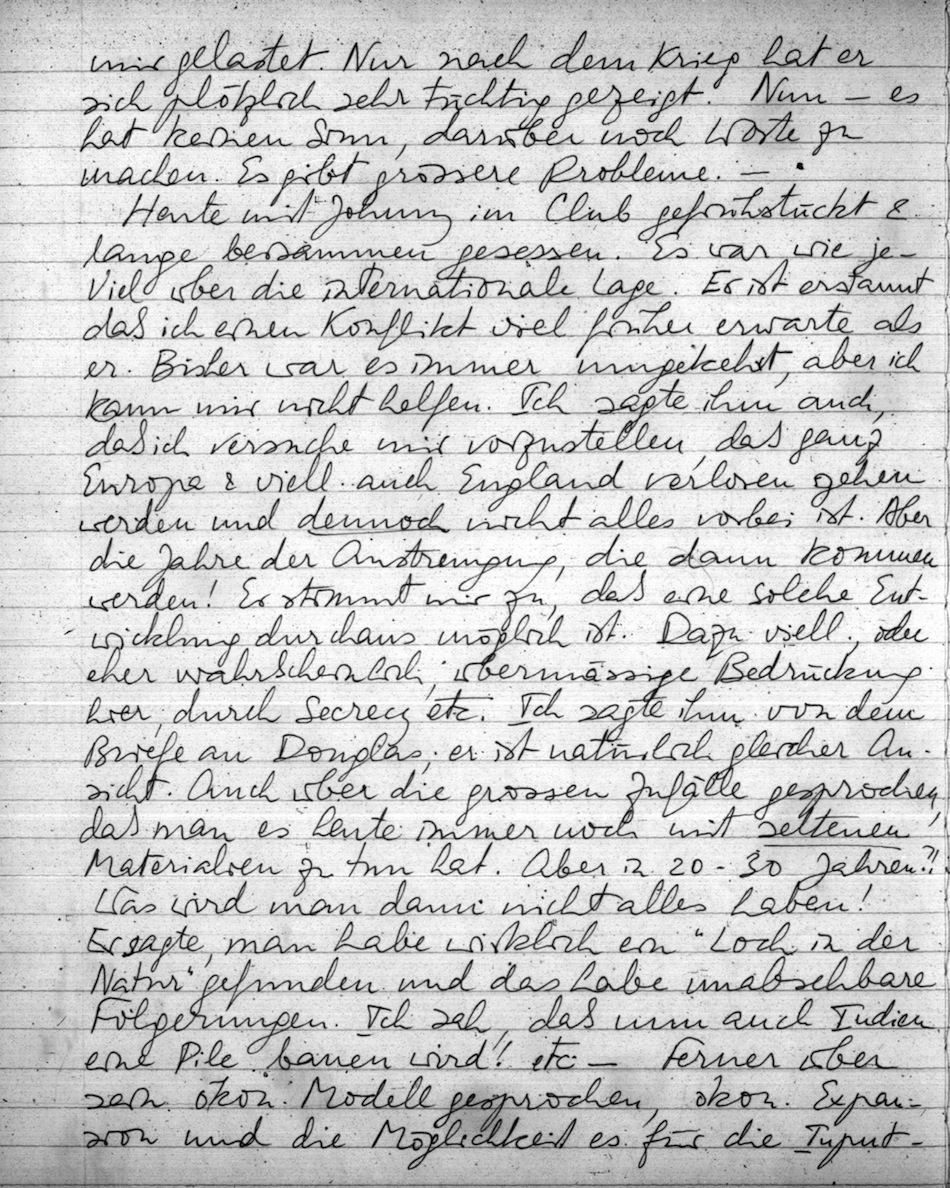 mir gelastet. Nur nach dem Krieg hat er
sich plötzlich sehr tüchtig gezeigt. Nun — es
hat keinen Sinn, darüber noch Worte zu
machen. Es gibt grössere Probleme. —
Heute mit Johnny im Club gefrühstückt &
lange beisammen gesessen. Es war wie je-
Viel über die internationale Lage. Er ist erstaunt
daß ich einen Konflikt viel früher erwarte als
er. Bisher war es immer umgekehrt, aber ich
kann mir nicht helfen. Ich sagte ihm auch,
daß ich versuche mir vorzustellen, daß ganz
Europa & viell. auch England verloren gehen
werden und dennoch nicht alles vorbei ist. Aber
die Jahre der Anstrengung, die dann kommen
werden! Er stimmt mir zu, daß eine solche Ent-
wicklung durchaus möglich ist. Dazu viell., oder
eher wahrscheinlich, übermässige Bedrückung
hier, durch Secrecy etc. Ich sagte ihm von dem
Briefe an Douglas; er ist natürlich gleicher An-
sicht. Auch über die grossen Zufälle gesprochen,
daß man es heute immer noch mit seltenen
Materialien zu tun hat. Aber in 20 - 30 Jahren?!
Was wird man dann nicht alles haben!
Er sagte, man habe wirklich ein "Loch in der
Natur" gefunden und das habe unabsehbare
Folgerungen. Ich sah, daß nun auch Indien
eine Pile bauen wird! etc — Ferner über
sein ökon. Modell gesprochen, ökon. Expan-
sion und die Möglichkeit es für die Input-